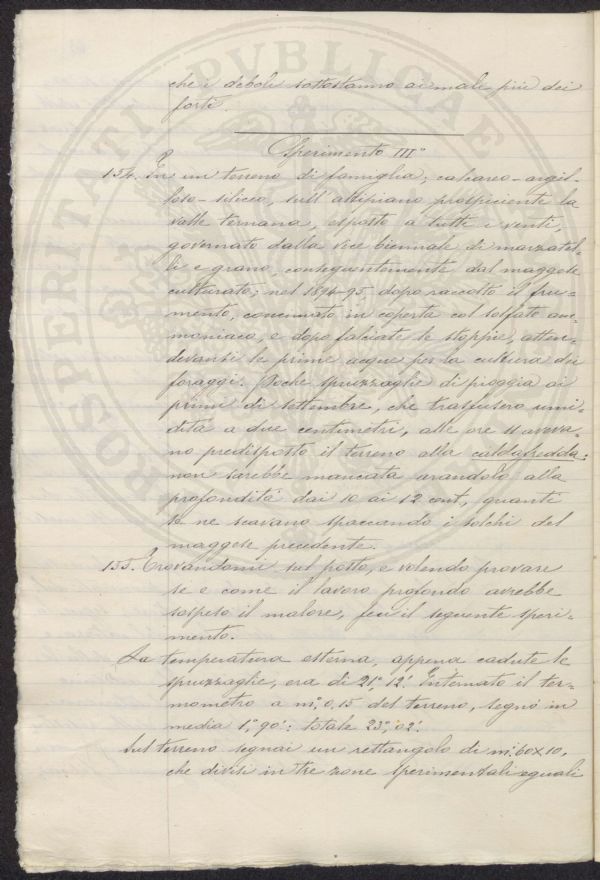 che i deboli sottostanno ai mali più dei
forti.
Sperimento III°
154. In un terreno di famiglia, calcareo-argil-
loso-siliceo, sull'altipiano prospiciente la
valle ternana, esposto a tutti i venti,
governato dalla vice biennale di marzatel-
li e grano, conseguentemente dal maggese
culturato; nel 1894-95, dopo raccolto il fru-
mento, concimato in coperta col solfato am-
moniaco, e dopo falciate le stoppie, atten-
devansi le prime acque per la cultura dei
foraggi. Poche spruzzaglie di pioggia ai
primi di settembre, che trasfusero umi-
dità a due centimetri, alle ore 11 aveva-
no predisposto il terreno alla caldafredda:
non sarebbe mancata arandolo alla
profondità dai 10 ai 12 cent, quanti
se ne scavano spaccando i solchi del
maggese precedente.
155. Trovandomi sul posto, e volendo provare
se e come il lavoro profondo avrebbe
sospeso il malore, feci il seguente speri-
mento.
La temperatura esterna, appena cadute le
spruzzaglie, era di 21°,12'. Internato il ter-
mometro a m° 0,15 del terreno, segnò in
media 1°,90': totale 23°,02'.
Sul terreno segnai un rettangolo di m.i 60x10,
che divisi in tre zone sperimentali eguali
PROSPERITATI PVBLICAE